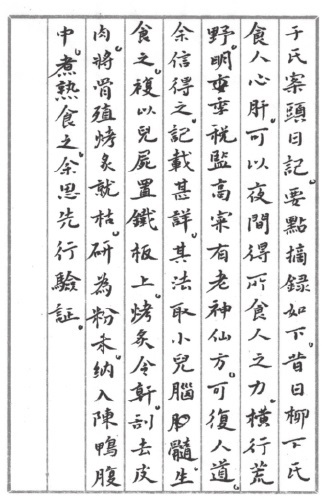 于氏案頭日記。要點摘録如下。昔日柳下氏
食人心肝。可以夜間得所食人之力。横行荒
野。明季税監高寀有老神仙方。可復人道。
余信得之。記載甚詳。其法取小兒腦胸髓。生
食之。複以兒屍置鐵板上。烤炙令乾。刮去皮
肉。將骨殖烤炙就枯。研為粉末。納入陳鴨腹
中。煮熟食之。余思先行驗証。